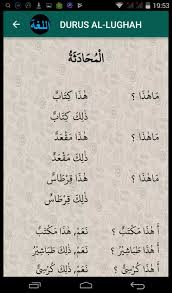 19:53
اللغة
DURUS AL-LUGHAH
الْمُحَادَثَةُ
مَاهٰذَا ؟ هٰذَا كِتَابٌ
ذٰلِكَ كِتَابٌ
مَاهٰذَا ؟ هٰذَا مَقْعَدٌ
ذٰلِكَ مَقْعَدٌ
مَاهٰذَا ؟ هٰذَا قِرْطَاسٌ
ذٰلِكَ قِرْطَاسٌ
أَ هٰذَا مَكْتَبٌ ؟ نَعَمْ، ذٰلِكَ مَكْتَبٌ
أَ هٰذَا طَبَاشِيْرُ ؟ نَعَمْ، ذٰلِكَ طَبَاشِيْرُ
أَ هٰذَا كُرْسِيٌّ ؟ نَعَمْ، ذٰلِكَ كُرْسِيٌّ